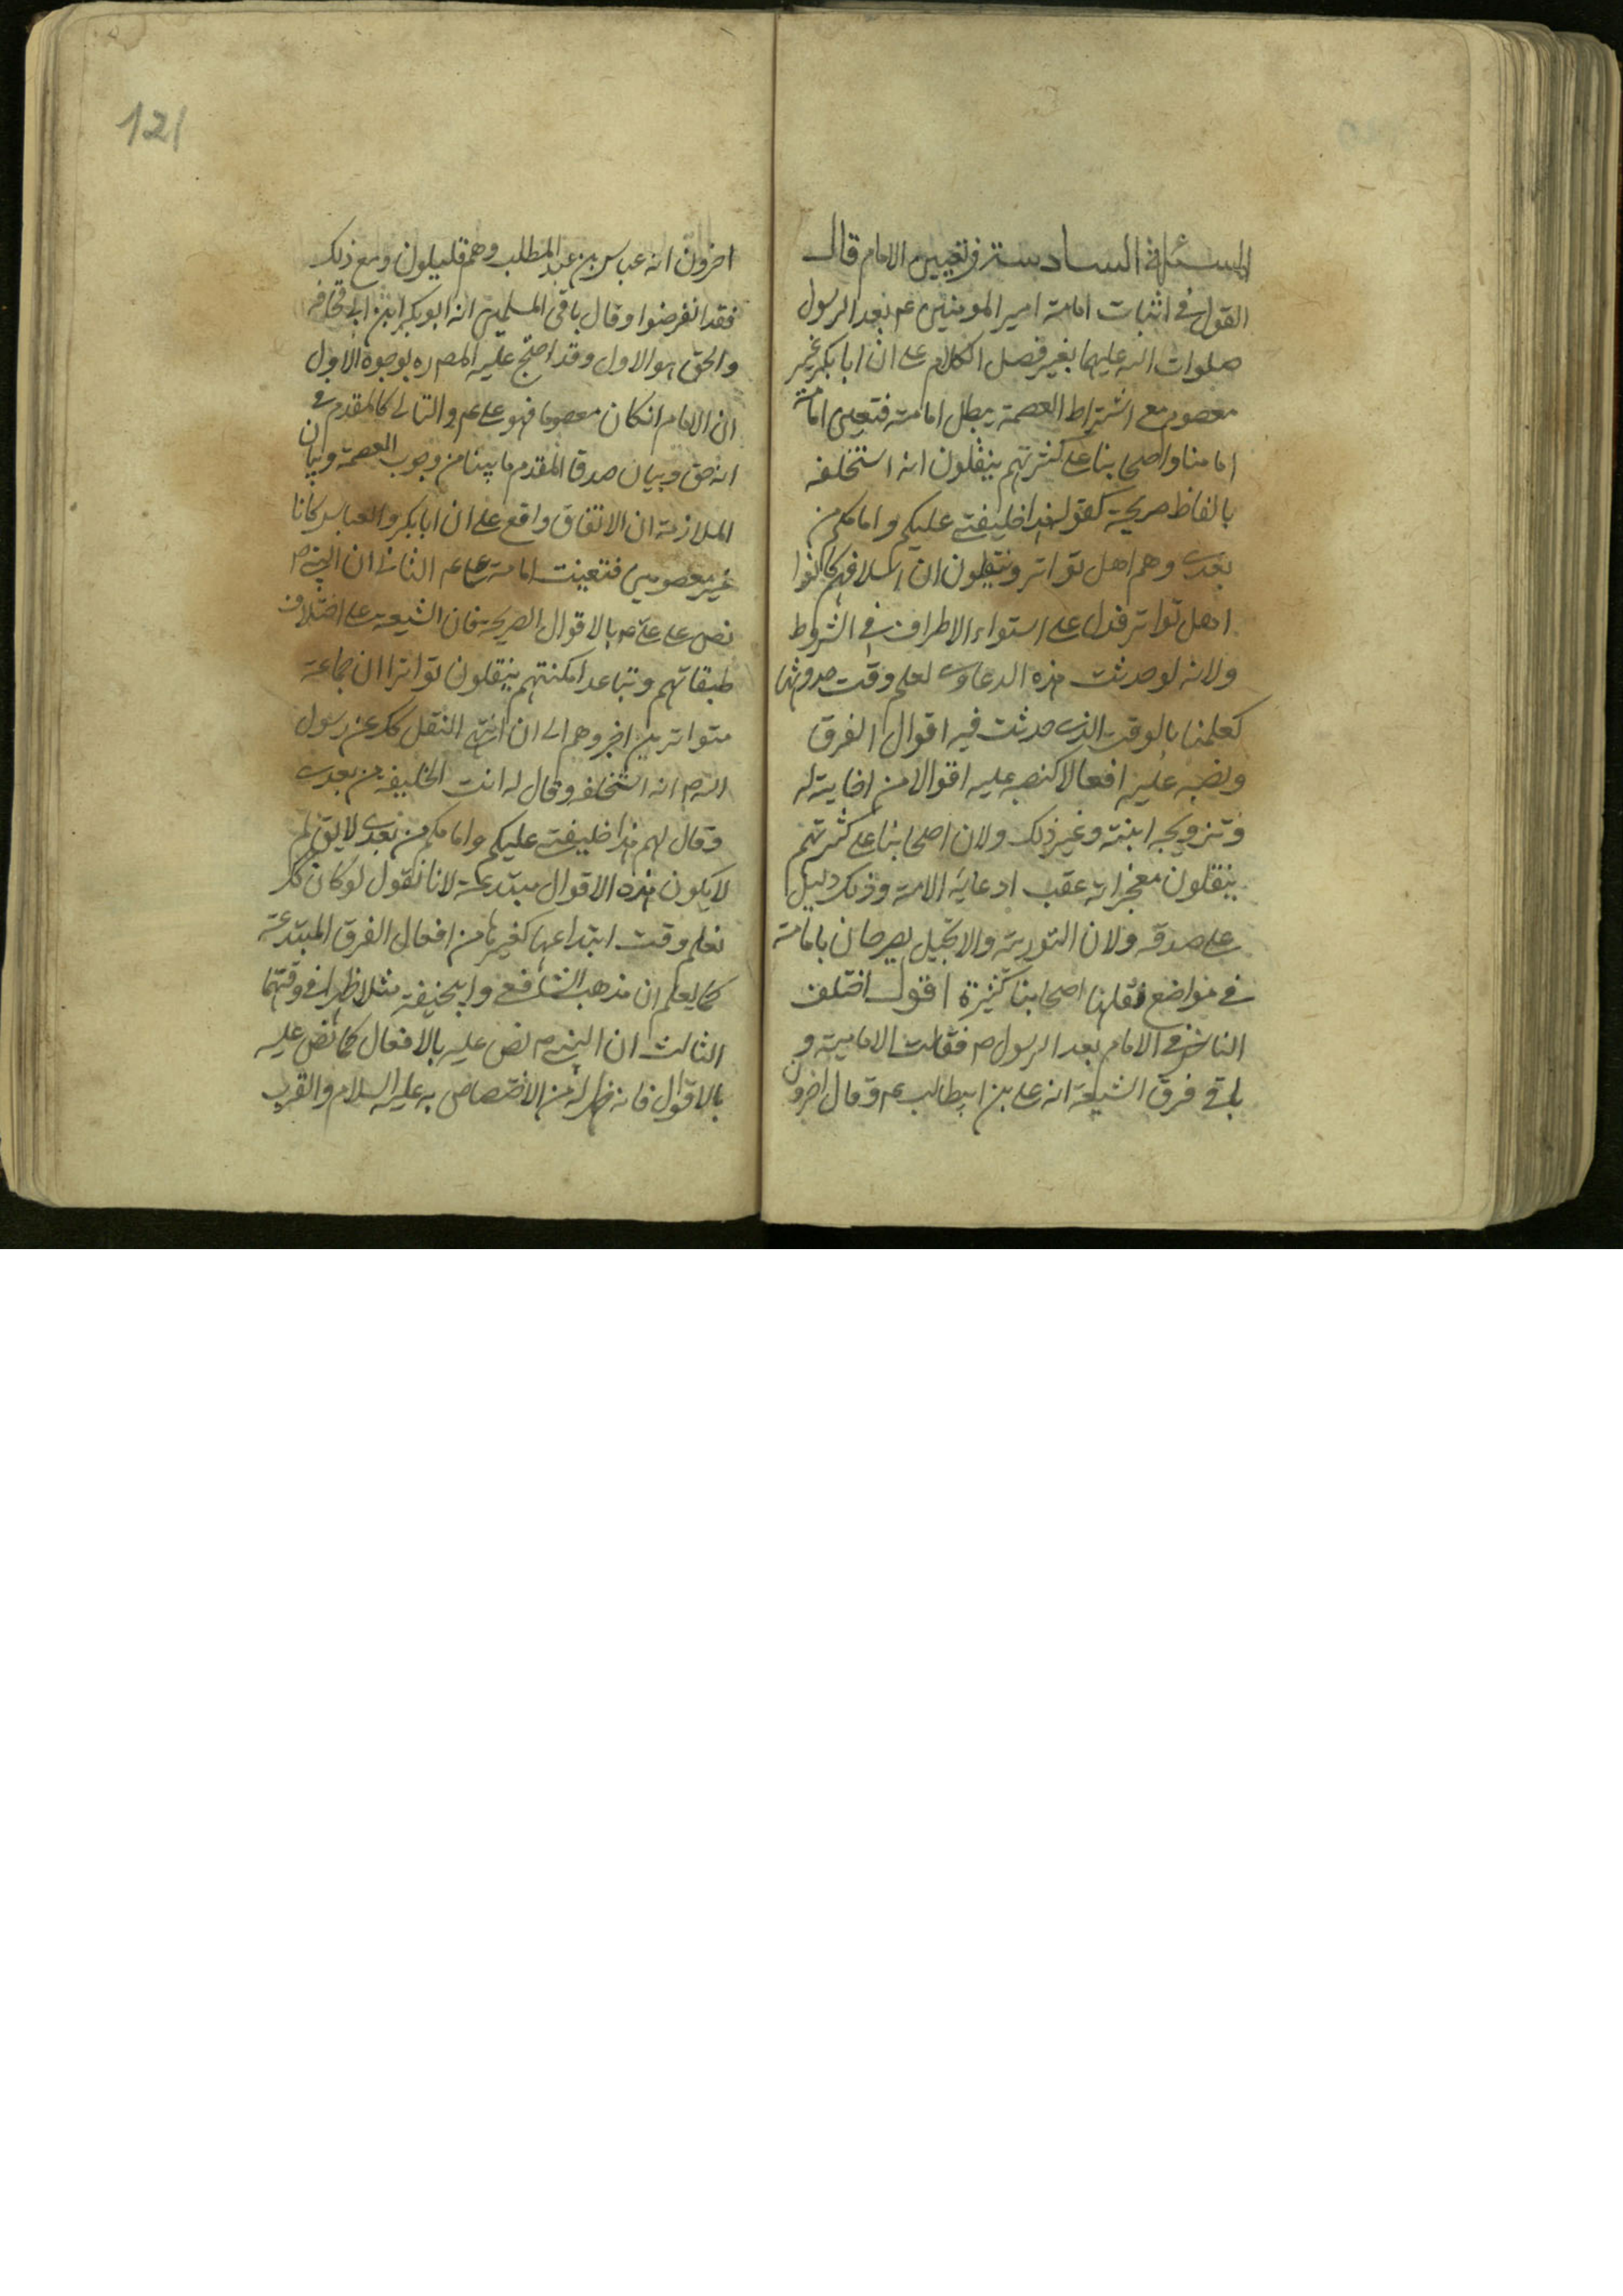 المسئلة السادسة في تعيين الامام قال
القول في اثبات امامة امير المومنين عم بعد الرسول
صلوات الله عليهما بغير فصل الكلام على ان ابا بكر غير
معصوم مع اشتراط العصمة يبطل امامته فتعين امامة
امامنا واصحابنا على كثرتهم ينقلون انه استخلفه
بالفاظ صريحة كقوله هذا خليفتي عليكم وامامكم من
بعدى وهم اهل تواتر وينقلون ان اسلافهم كانوا
اهل تواتر فدل على استواء الاطراف في الشروط
ولانه لو حدثت هذه الدعاوى لعلم وقت حدوثها
كعلمنا بالوقت الذى حدثت فيه اقوال الفرق
ونصبه عليه افعالا كنصه عليه اقوالا من اخايته له
وتزويجه ابنته وغير ذلك ولان اصحابنا على كثرتهم
ينقلون معجزاته عقب ادعائه الامة وذلك دليل
على صدقه ولان التورية والانجيل يصرحان بامامته
في مواضع نقلها اصحابنا كثيرة اقول اختلف
الناس في الامام بعد الرسول ص فقالت الامامية و
باقى فرق الشيعة انه على بن ابيطالب عم وقال اخرون
اخرون انه عباس بن عبد المطلب وهم قليلون ومع ذلك
فقد انقرضوا وقال باقى المسلمين انه ابوبكر ابن ابى قحافه
والحق هو الاول وقد احتج عليه المص ره بوجوه الاول
ان الامام ان كان معصوما فهو على عم والتالى كالمقدم في
انه حق وبيان صدق المقدم ما بينا من وجوب العصمة وبيان
الملازمة ان الاتفاق واقع على ان ابا بكر والعباس كانا
غير معصومين فتعينت امامة على عم الثانى ان النبي ص
نص على على عم بالاقوال الصريحة فان الشيعة على اختلاف
طبقاتهم وتباعد امكنتهم ينقلون تواترا ان جماعة
متواترين اخبروهم الى ان انتهى النقل كك عن رسول
الله ص انه استخلفه وقال له انت الخليفه من بعدى
وقال لهم هذا خليفتى عليكم وامامكم من بعدى لا يق لم
لا يكون هذه الاقوال مبتدعة لانا نقول لو كان كك
لعلم وقت ابتداعها كغيرها من افعال الفرق المبتدعة
كما يعلم ان مذهب الشافعى وابيحنيفه مثلا ظهرا في وقتهما
الثالث ان النبي ص نص عليه بالافعال كما نص عليه
بالاقوال فانه ظهر له من الاختصاص به عليه السلام والقرب
121